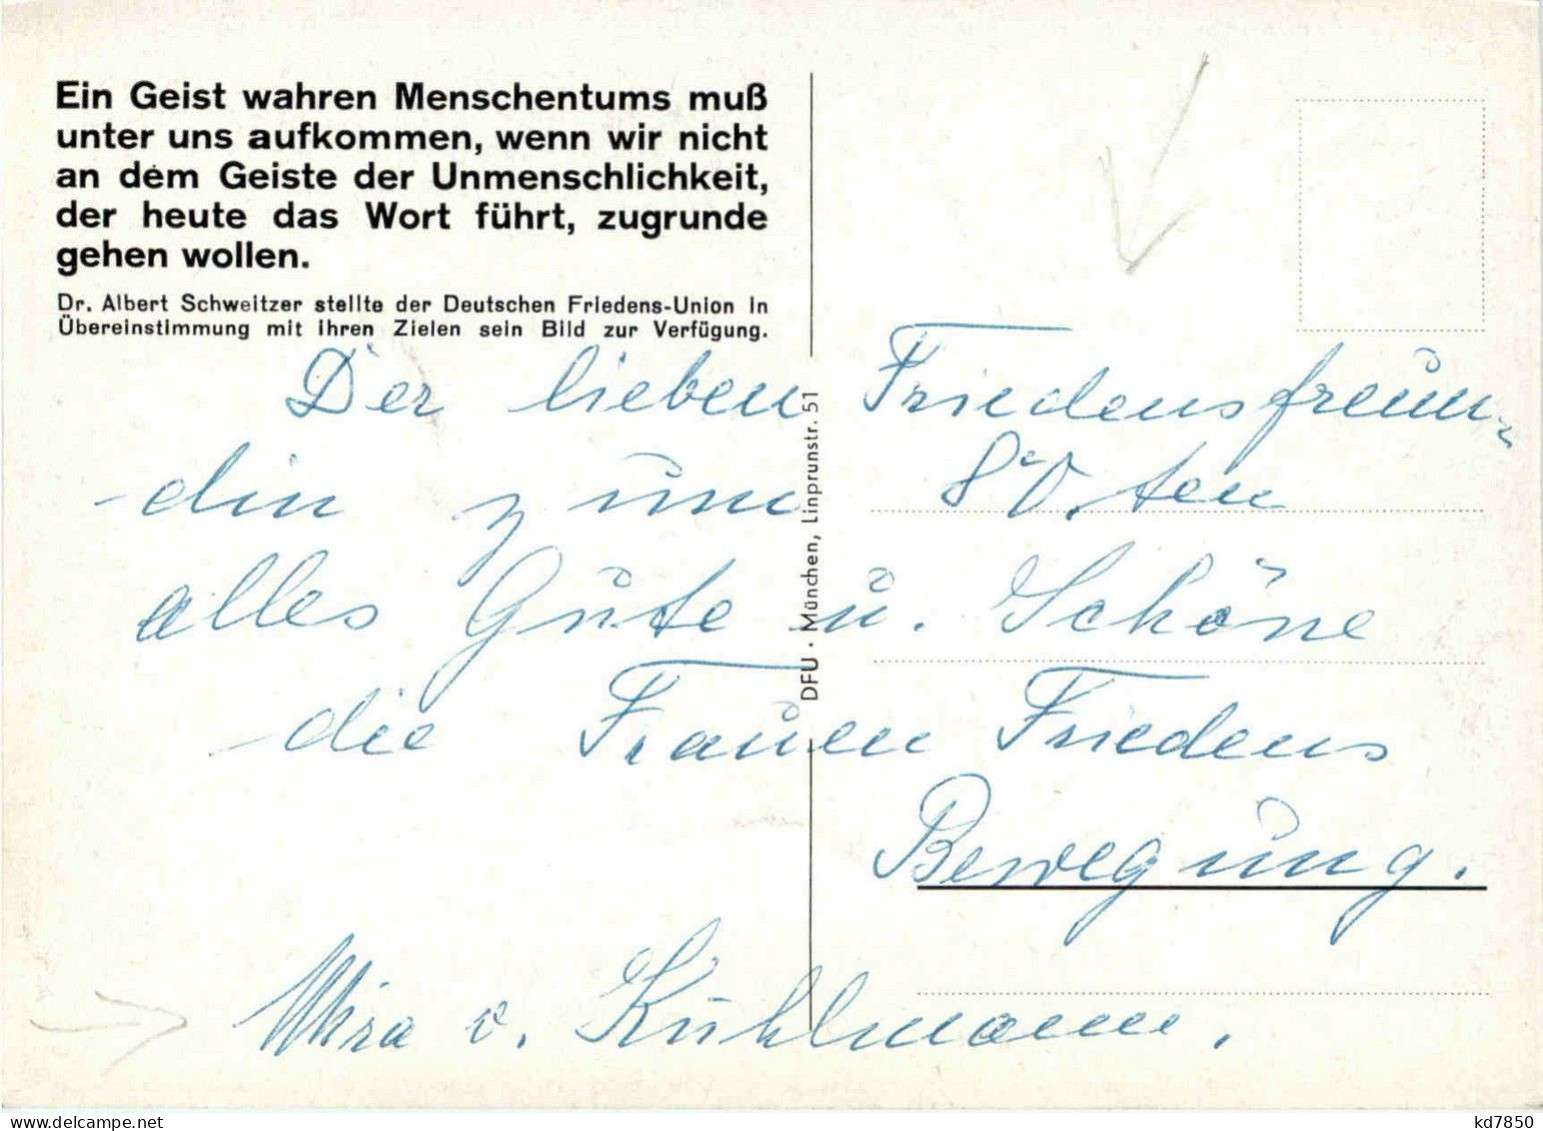 Ein Geist wahren Menschentums muß
unter uns aufkommen, wenn wir nicht
an dem Geiste der Unmenschlichkeit,
der heute das Wort führt, zugrunde
gehen wollen.
Dr. Albert Schweitzer stellte der Deutschen Friedens-Union in
Übereinstimmung mit ihren Zielen sein Bild zur Verfügung.
Der lieben Friedensfreun-
din zum 80. ten
alles Gute u. Schöne
die Frauen Friedens
Bewegung.
Mira v. Kühlmann.
DFU · München, Linprunstr. 51
kd7850